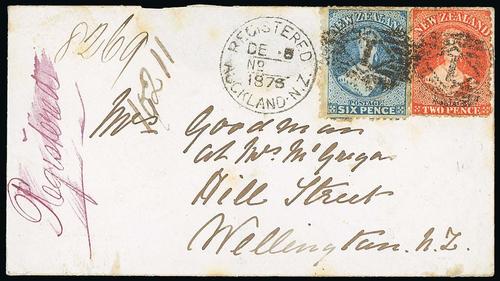 8269
16211
Registered
REGISTERED
DE 8
No
1873
AUCKLAND·N.Z.
NEW ZEALAND
POSTAGE
SIX PENCE
NEW ZEALAND
POSTAGE
TWO PENCE
Mrs Goodman
at Mrs McGregor
Hill Street
Wellington. N.Z.